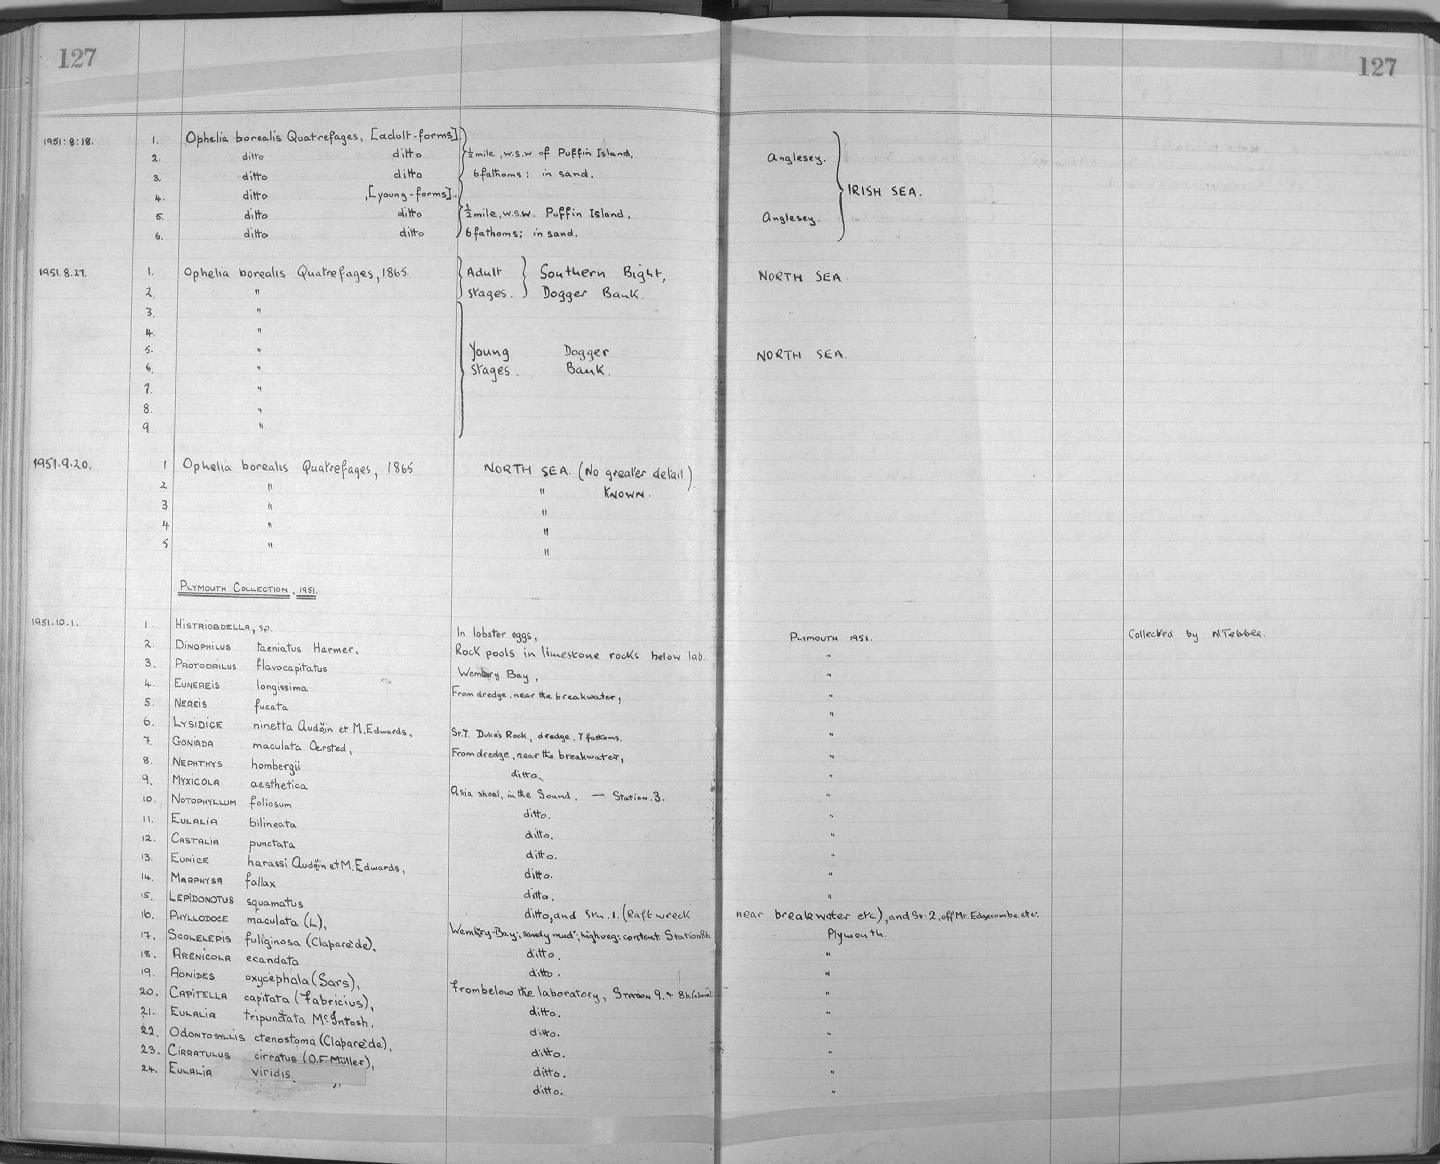 127
127
1951:8:18. 1. Ophelia borealis Quatrefages, [adult-forms].
2. ditto ditto ½mile, w.s.w of Puffin Island, Anglesey.
3. ditto ditto 6 fathoms; in sand.
4. ditto ,[young-forms]. IRISH SEA.
5. ditto ditto ½mile, w.s.w. Puffin Island, Anglesey.
6. ditto ditto 6 fathoms; in sand.
1951.8.27. 1. Ophelia borealis Quatrefages, 1865 Adult Southern Bight, NORTH SEA.
2. " stages. Dogger Bank.
3. "
4. "
5. " Young Dogger NORTH SEA.
6. " stages. Bank.
7. "
8. "
9 "
1951.9.20. 1 Ophelia borealis Quatrefages, 1865 NORTH SEA. (No greater detail)
2 " " KNOWN.
3 " "
4 " "
5 " "
PLYMOUTH COLLECTION, 1951.
1951.10.1. 1. HISTRIOBDELLA, sp. In lobster eggs, PLYMOUTH 1951. Collected by N.Tebble.
2. DINOPHILUS taeniatus Harmer. Rock pools in limestone rocks below lab. "
3. PROTODRILUS flavocapitatus Wembury Bay, "
4. EUNEREIS longissima From dredge, near the breakwater, "
5. NEREIS fucata "
6. LYSIDICE ninetta Audöin et M.Edwards, St.7. Duke's Rock, dredge, 7 fathoms. "
7. GONIADA maculata Oersted, From dredge, near the breakwater, "
8. NEPHTHYS hombergii ditto. "
9. MYXICOLA aesthetica Asia shoal, in the Sound. — STATION.3. "
10. NOTOPHYLLUM foliosum ditto. "
11. EULALIA bilineata ditto. "
12. CASTALIA punctata ditto. "
13. EUNICE harassi Audöin et M.Edwards, ditto. "
14. MARPHYSA fallax ditto. "
15. LEPIDONOTUS squamatus ditto, and Stn. 1. (Raft wreck near breakwater etc.), and St. 2, off Mt. Edgecombe etc.
16. PHYLLODOCE maculata (L), Wembury-Bay; sandy mud; high veg: content. Station 8b. Plymouth.
17. SCOLELEPIS fuliginosa (Claparède). ditto. "
18. ARENICOLA ecandata ditto. "
19. AONIDES oxycephala (Sars), From below the laboratory, STATION 9. & 8b. "
20. CAPITELLA capitata (Fabricius), ditto. "
21. EULALIA tripunctata McIntosh, ditto. "
22. ODONTOSYLLIS ctenostoma (Claparède), ditto. "
23. CIRRATULUS cirratus (O.F.Müller), ditto. "
24. EULALIA viridis. " ditto. "